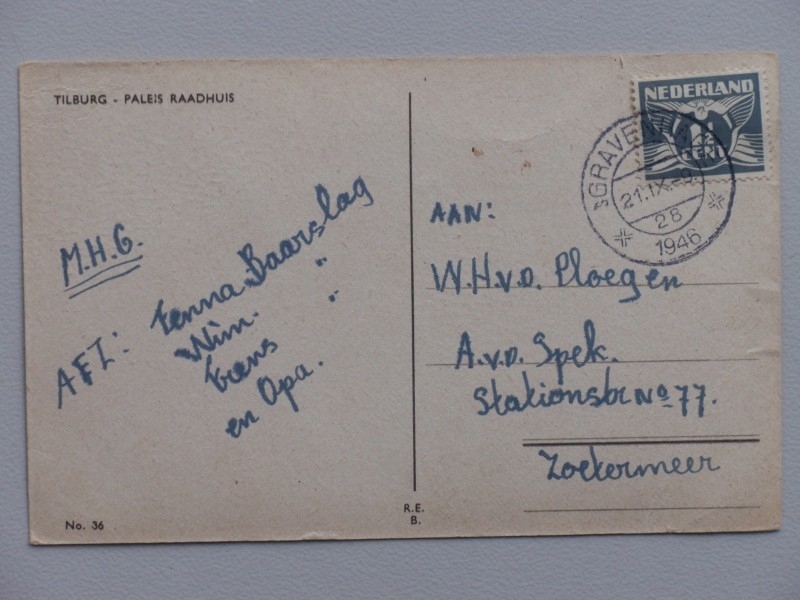 TILBURG - PALEIS RAADHUIS
M.H.G.
AFZ: Fenna Baarslag
Wim. "
Frens "
en Opa.
No. 36
R.E.
B.
NEDERLAND
1½
CENT
'sGRAVENHA
21.IX.-9
28
1946
AAN:
W.H.v.d. Ploegen
A.v.d. Spek.
Stationsstr No 77.
Zoetermeer